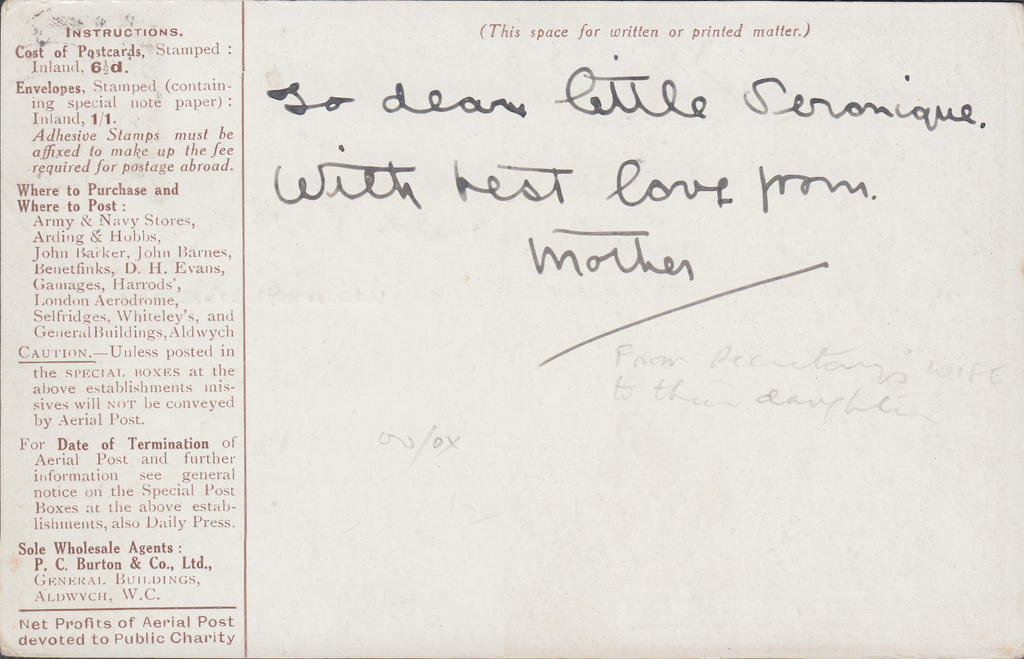 INSTRUCTIONS.
Cost of Postcards, Stamped :
Inland, 6½d.
Envelopes, Stamped (contain-
ing special note paper) :
Inland, 1/1.
Adhesive Stamps must be
affixed to make up the fee
required for postage abroad.
Where to Purchase and
Where to Post :
Army & Navy Stores,
Arding & Hobbs,
John Barker, John Barnes,
Benetfinks, D. H. Evans,
Gamages, Harrods',
London Aerodrome,
Selfridges, Whiteley's, and
General Buildings, Aldwych
CAUTION.—Unless posted in
the SPECIAL BOXES at the
above establishments mis-
sives will NOT be conveyed
by Aerial Post.
For Date of Termination of
Aerial Post and further
information see general
notice on the Special Post
Boxes at the above estab-
lishments, also Daily Press.
Sole Wholesale Agents :
P. C. Burton & Co., Ltd.,
GENERAL BUILDINGS,
ALDWYCH, W.C.
Net Profits of Aerial Post
devoted to Public Charity
(This space for written or printed matter.)
To dear little Veronique.
With best love from.
Mother
From Secretary's WIFE
to their daughter